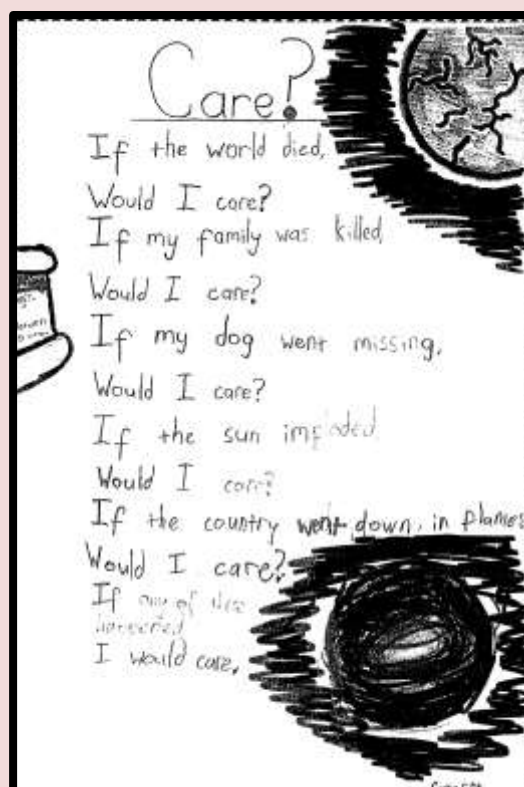 Care?
If the world died,
Would I care?
If my family was killed,
Would I care?
If my dog went missing,
Would I care?
If the sun imploded
Would I care?
If the country went down, in flames
Would I care?
If any of
happened
I would care.